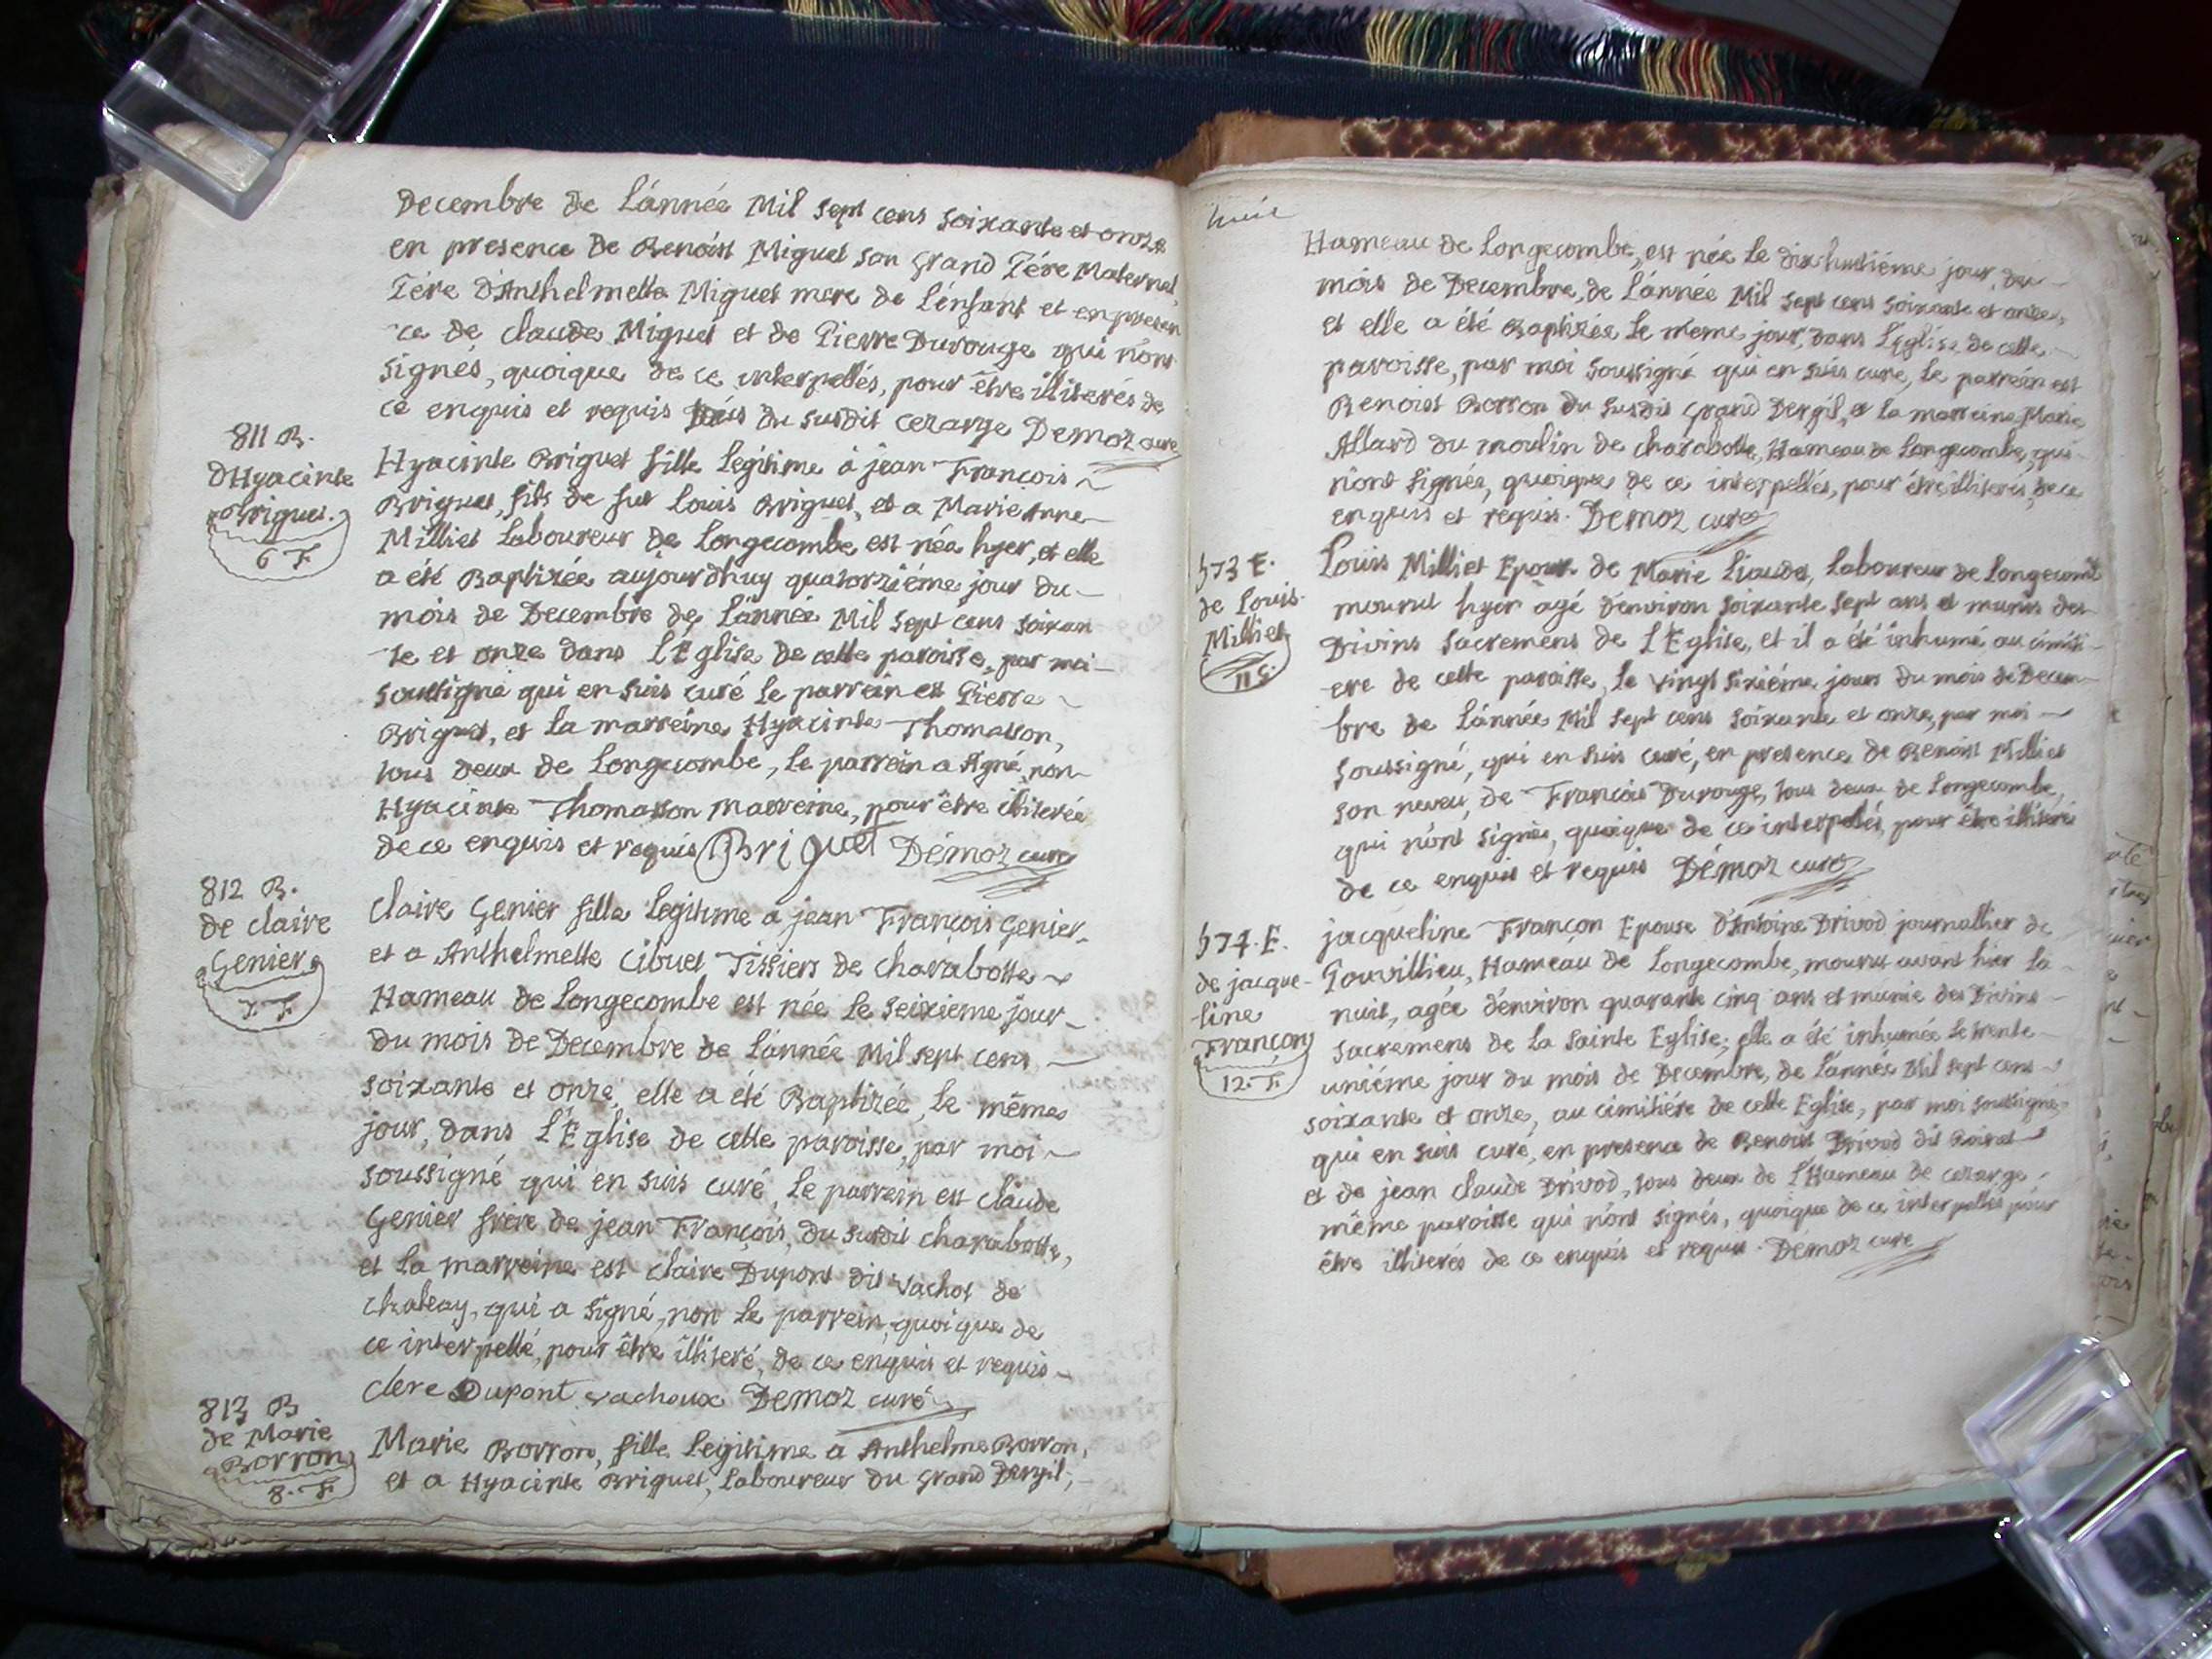 Decembre de L'année Mil sept cens soixante et onze
en presence de Benoist Miguet son grand Pére Maternel,
Pére d'Anthelmette Miguet mere de L'enfant et en presen
ce de claude Miguet et de Pierre Durouge qui n'ont
signés, quoique de ce interpellés, pour être illiterés de
ce enquis et requis tous du susdit cezarge Demoz curé
811 B.
d'Hyacinte
Briguet.
6 F
Hyacinte Briguet fille legitime à jean François
Briguet, fils de fut Louis Briguet, et a Marie Anne
Milliet Laboureur de Longecombe est néa hyer, et elle
a été Baptizée aujourdhuy quatorziéme jour du
mois de Decembre de L'année Mil sept cens soixan
te et onze dans L'Eglise de cette paroisse, par moi
soussigné qui en suis curé le parrein est Pierre
Briguet, et la marreine Hyacinte Thomasson,
tous deux de Longecombe, le parrein a signé, non
Hyacinte Thomasson marreine, pour être illiterée
de ce enquis et requis Briguet Démoz curé
812 B.
de claire
Genier
7. F
claire Genier fille legitime a jean François Genier
et a Anthelmette Cibuet Tissiers de charabotte
Hameau de Longecombe est née le seizieme jour
du mois de Decembre de L'année Mil sept cens
soixante et onze, elle a été Baptizée, le même
jour, dans L'Eglise de cette paroisse, par moi
soussigné qui en suis curé, le parrein est claude
Genier frére de jean François, du susdit charabotte,
et la marreine est claire Dupont dit vachot de
chaleay, qui a signé, non le parrein, quoique de
ce interpellé, pour être illiteré, de ce enquis et requis
clere Dupont vachoux Demoz curé
813 B
de Marie
Borron
8. F
Marie Borron, fille legitime a Anthelme Borron,
et a Hyacinte Briguet, Laboureur du grand Dergil,
Hameau de Longecombe, est née le dix huitiéme jour, du
mois de Decembre, de L'année Mil sept cens soixante et onze,
et elle a été Baptizée le même jour, dans L'Eglise de cette
paroisse, par moi soussigné qui en suis curé, le parrein est
Benoist Borron du susdit grand Dergil, et la marreine Marie
Allard du moulin de charabotte, Hameau de Longecombe, qui
n'ont signés, quoique de ce interpellés, pour être illiterés, de ce
enquis et requis. Demoz curé
573 E.
de Louis
Milliet
11 G.
Louis Milliet Epoux de Marie Liaudet, Laboureur de Longecombe
mourut hyer agé d'environ soixante sept ans et munis des
Divins Sacremens de L'Eglise, et il a été inhumé au cimiti
ere de cette paroisse, le vingt sixiéme jours du mois de Decem
bre de L'année Mil sept cens soixante et onze, par moi
soussigné, qui en suis curé, en presence de Benoist Milliet
son neveu, de François Durouge, tous deux de Longecombe,
qui n'ont signés, quoique de ce interpellés, pour être illiteré
de ce enquis et requis Démoz curé
574. E.
de jacque-
line
Françon
12. F
jacqueline Françon Epouse d'Antoine Drivod journallier de
Gouvillieu, Hameau de Longecombe, mourut avant hier la
nuit, agée d'environ quarante cinq ans et munie des Divins
sacremens de la Sainte Eglise; elle a été inhumée le trente
uniéme jour du mois de Decembre, de L'année Mil sept cens
soixante et onze, au cimitiére de cette Eglise, par moi soussigné
qui en suis curé, en presence de Benoist Drivod dit
et de jean claude Drivod, tous deux de L'Hameau de cezarge
même paroisse qui n'ont signés, quoique de ce interpellés pour
être illiterés de ce enquis et requis. Démoz curé